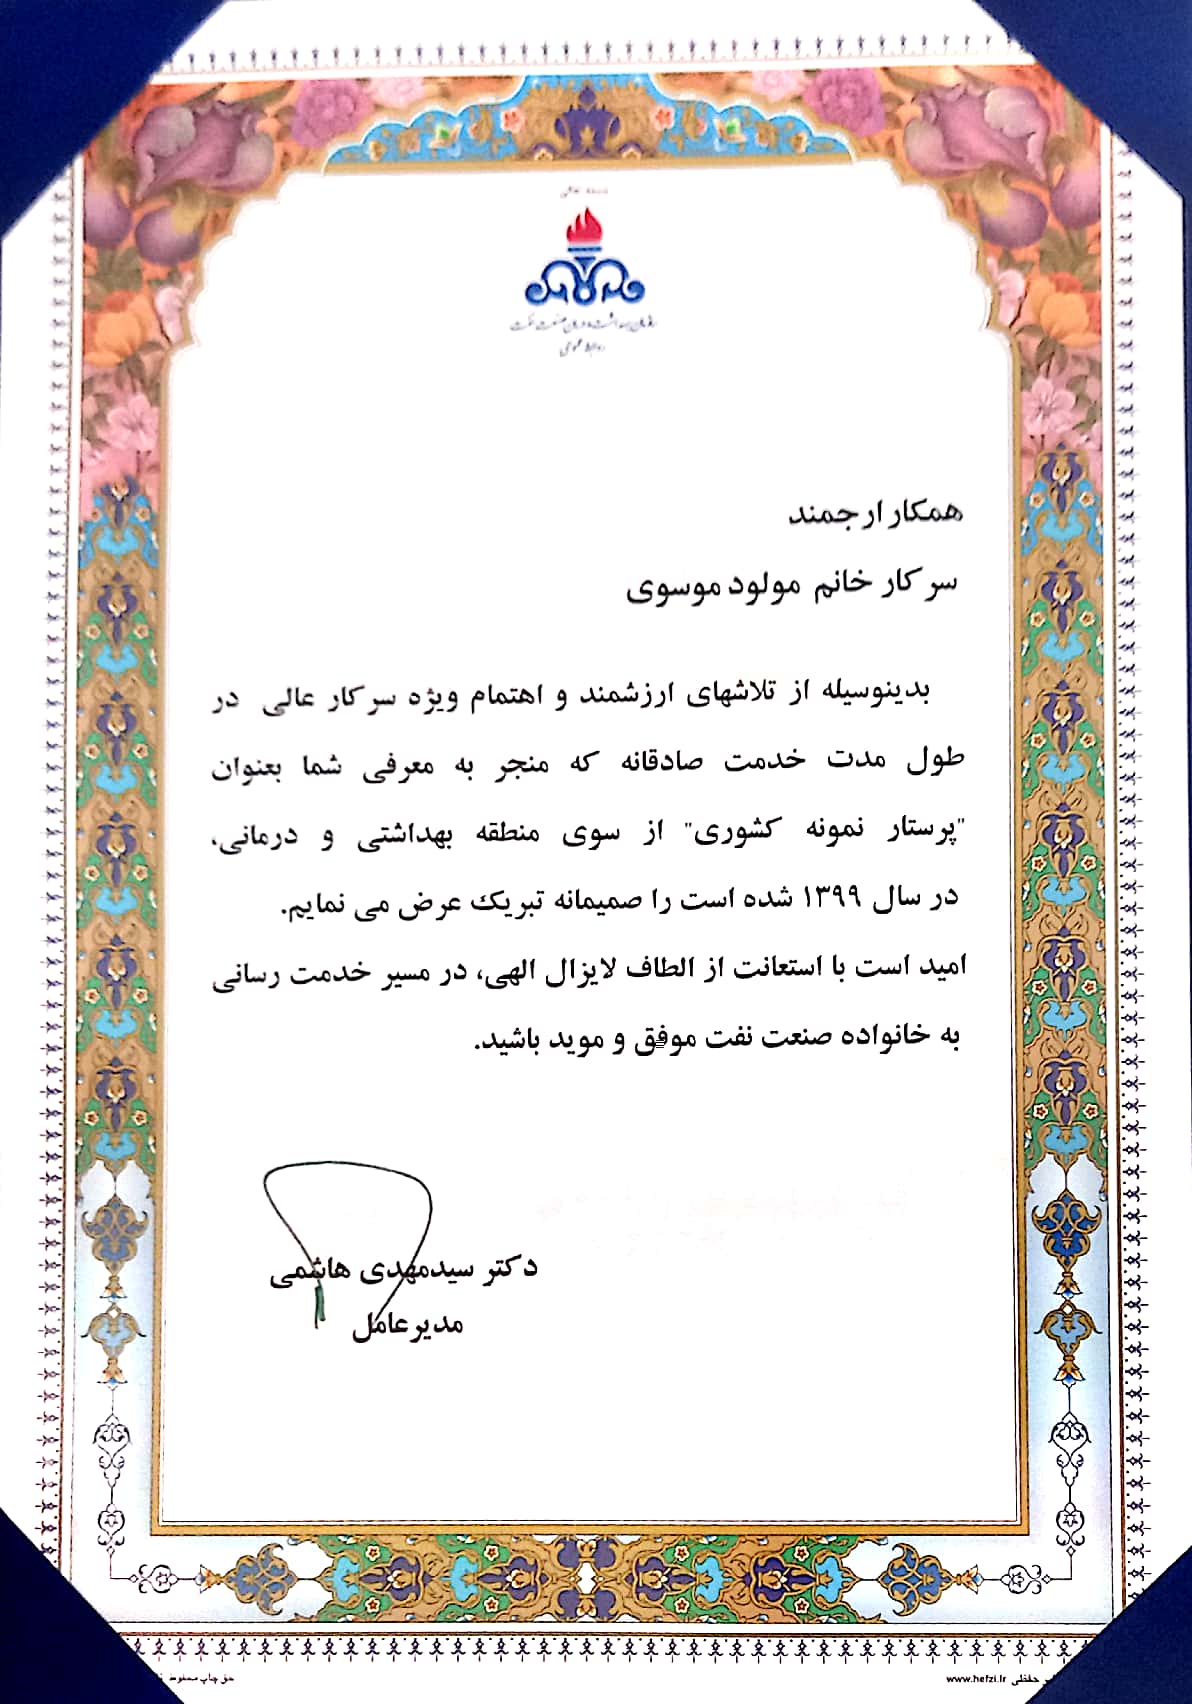 بسمه تعالی
سازمان بهداشت و درمان صنعت نفت
روابط عمومی
همکار ارجمند
سرکار خانم مولود موسوی
بدینوسیله از تلاشهای ارزشمند و اهتمام ویژه سرکار عالی در
طول مدت خدمت صادقانه که منجر به معرفی شما بعنوان
"پرستار نمونه کشوری" از سوی منطقه بهداشتی و درمانی،
در سال ۱۳۹۹ شده است را صمیمانه تبریک عرض می نمایم.
امید است با استعانت از الطاف لایزال الهی، در مسیر خدمت رسانی
به خانواده صنعت نفت موفق و موید باشید.
دکتر سیدمهدی هاشمی
مدیرعامل
حق چاپ محفوظ
حفظی www.hefzi.ir